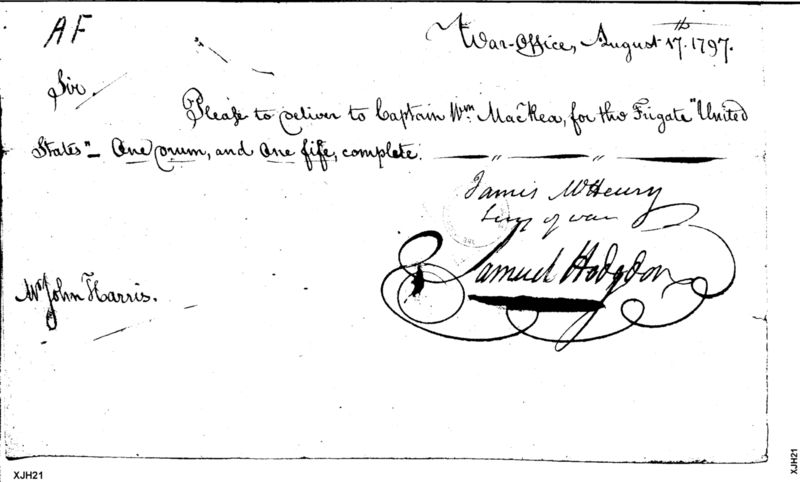 AF
War-Office, August 17th. 1797.
Sir
Please to deliver to Captain Wm. MacRea, for the Frigate "United
States" - One drum, and One fife, complete.
James McHenry
Secy of war
Samuel Hodgdon
Mr John Harris.
XJH21
XJH21